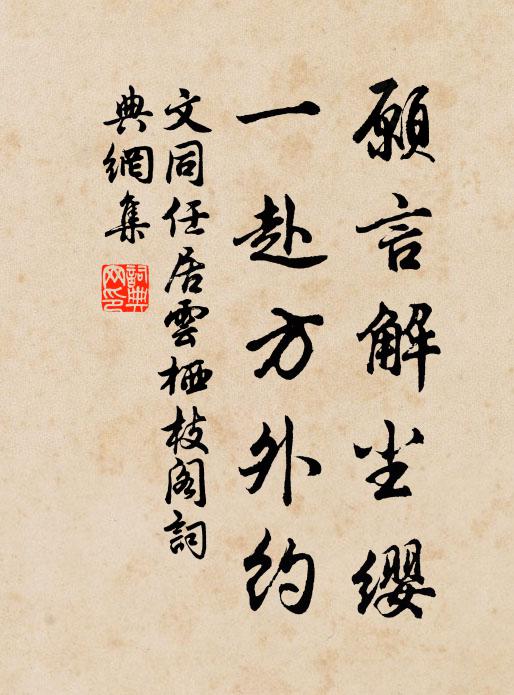 願言解尘缨
一赴方外约
文同任居雲栖枝阁詞
典網集
詞典網印